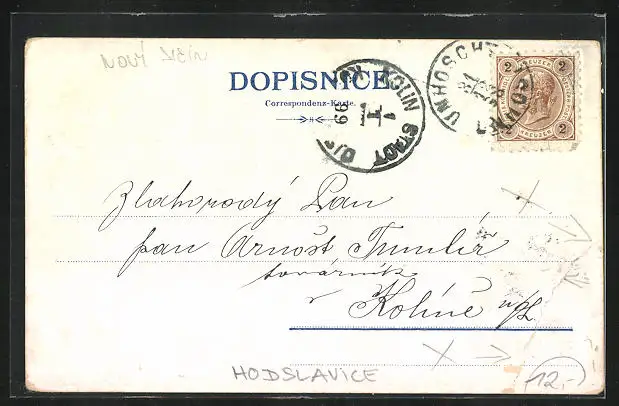 NOVÝ JIČÍN
DOPISNICE
Correspondenz-Karte.
KOLIN STADT
1/1
99
UNHOSCHT
2 KREUZER 2
2 KREUZER 2
Blahorodý Pan
pan Arnošt
továrník
v Kolíně n/L.
HODSLAVICE
12,-